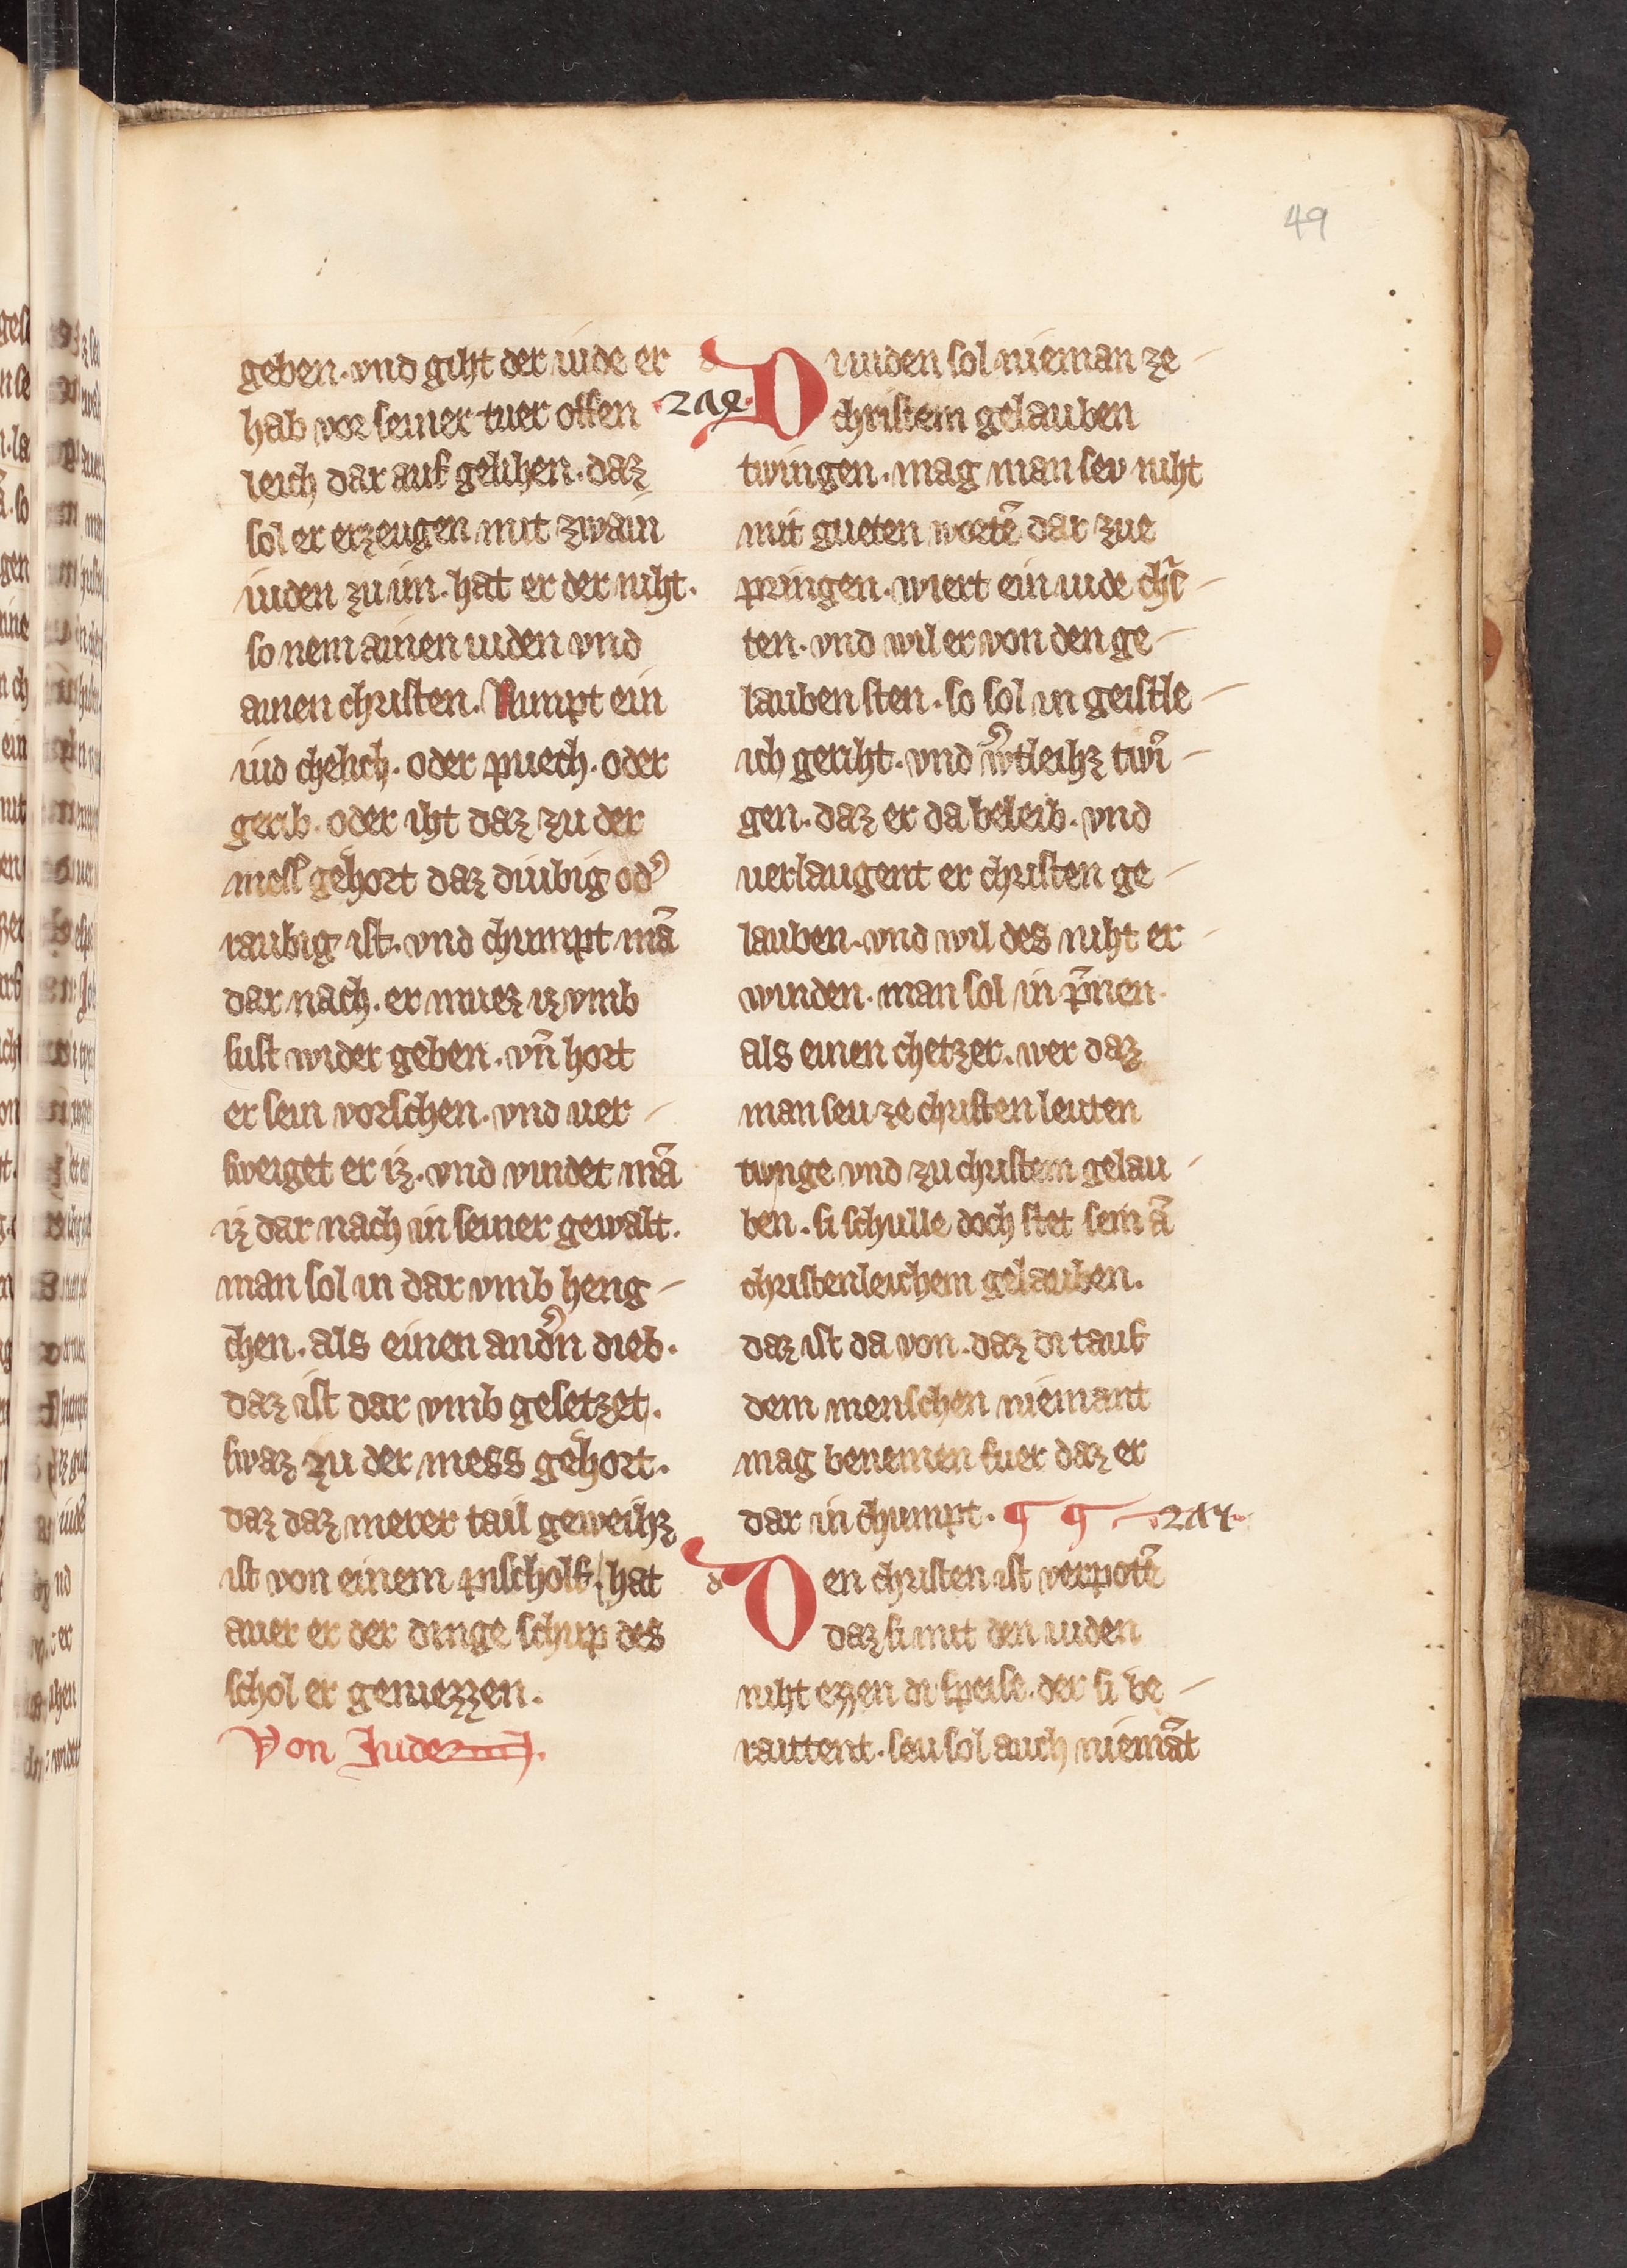 49
geben. vnd giht der iude er
hab vor seiner tuer offen
leich dar auf gelihen. daz
sol er erzeugen mit zwain
iuden zu im. hat er der niht.
so nem ainen iuden vnd
ainen christen. Nimpt ein
iud chelich. oder puech. oder
gerib. oder iht daz zu der
mess gehort daz diubig od᾽
raubig ist. vnd chumpt mā
dar nach. er muez iz vmb
sust wider geben. vn̄ hort
er sein vorschen. vnd uer-
sweiget er iz. vnd vindet mā
iz dar nach in seiner gewalt.
man sol in dar vmb heng-
chen. als einen and᾽n dieb.
daz ist dar vmb gesetzet.
swaz zu der mess gehort.
daz daz merer tail geweihz
ist von einem pischolf. hat
auer er der dinge schup des
schol er geniezzen.
Von Juden.
D iuden sol nieman ze-
christem gelauben
twingen. mag man sev niht
mit gueten wortē dar zue
pringen. wiert ein iude chr̄-
ten. vnd wil er von den ge-
lauben sten. so sol in geistle-
ich geriht. vnd w᾽tleihz twī-
gen. daz er da beleib. vnd
uerlaugent er christen ge-
lauben. vnd wil des niht er-
winden. man sol in p̄nen.
als einen chetzer. wer daz
man seu ze christen leuten
twnge vnd zu christem gelau-
ben. si schulle doch stet sein ā
christenleichem gelauben.
daz ist da von. daz di tauf
dem menschen niemant
mag benemen fuer daz er
dar in chumpt. ¶ ¶
Den christen ist verpotē
daz si mit den iuden
niht ezzen di speise. der si be-
raittent. seu sol auch niemāt